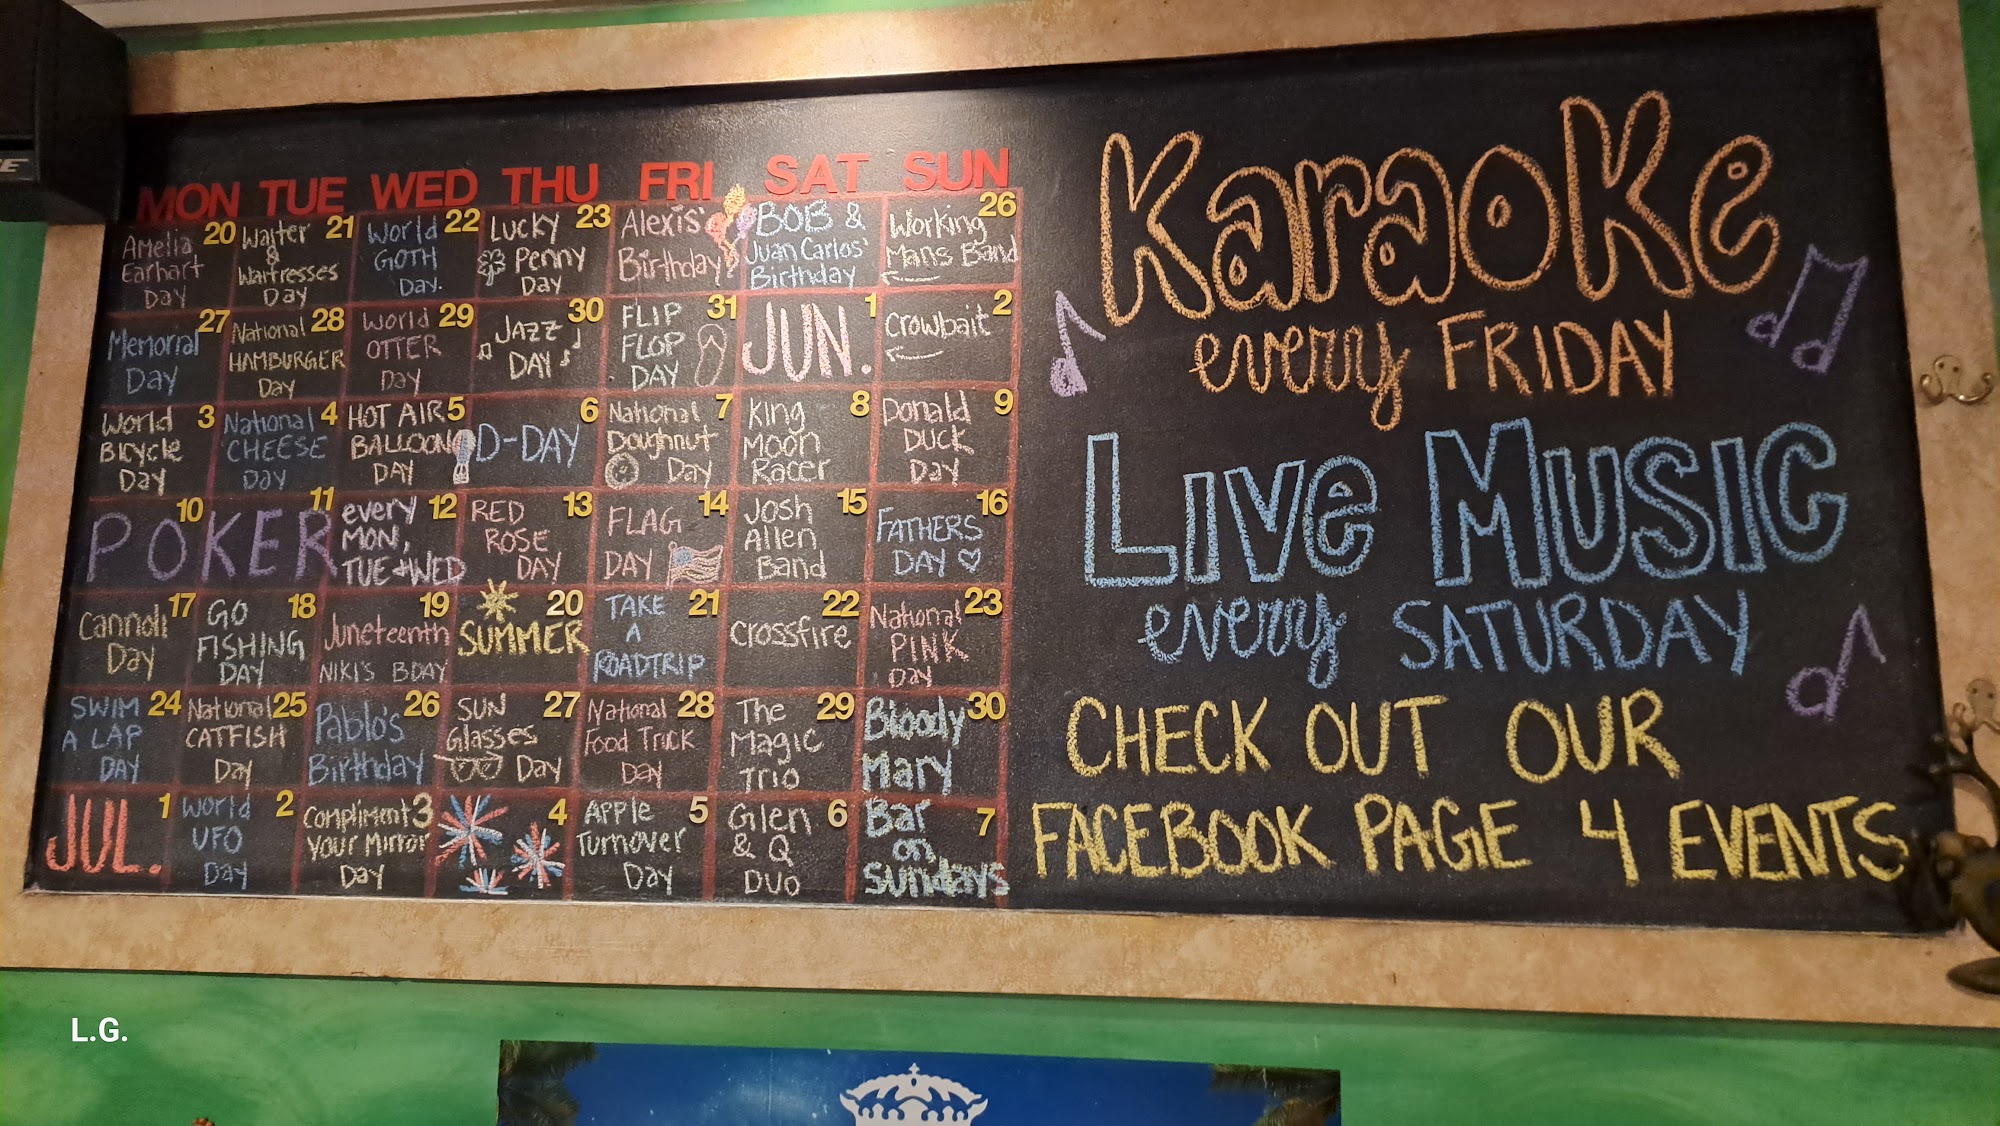 MON TUE WED THU FRI SAT SUN
Amelia 20
Earhart
Day
Waiter 21
&
Waitresses
Day
World 22
GOTH
Day.
Lucky 23
Penny
Day
Alexis'
Birthday!
BOB &
Juan Carlos'
Birthday
Working 26
Mans Band
27
Memorial
Day
National 28
HAMBURGER
Day
World 29
OTTER
Day
JAZZ 30
DAY
FLIP 31
FLOP
DAY
1
JUN.
2
Crowbait
World 3
Bicycle
Day
National 4
CHEESE
DAY
HOT AIR 5
BALLOON
DAY
6
D-DAY
National 7
Doughnut
Day
King 8
Moon
Racer
Donald 9
DUCK
Day
10 11
POKER
every 12
MON,
TUE + WED
RED 13
ROSE
DAY
FLAG 14
DAY
Josh 15
Allen
Band
16
FATHERS
DAY
17
Cannoli
Day
GO 18
FISHING
DAY
19
Juneteenth
NIKI'S BDAY
20
SUMMER
TAKE 21
A
ROADTRIP
22
Crossfire
National 23
PINK
Day
SWIM 24
A LAP
DAY
National 25
CATFISH
Day
Pablo's 26
Birthday
SUN 27
Glasses
Day
National 28
Food Truck
Day
The 29
Magic
Trio
Bloody 30
Mary
1
JUL.
World 2
UFO
Day
Compliment 3
Your Mirror
Day
4
Apple 5
Turnover
Day
Glen 6
& Q
DUO
Bar 7
on
Sundays
Karaoke
every FRIDAY
Live Music
every SATURDAY
CHECK OUT OUR
FACEBOOK PAGE 4 EVENTS
L.G.